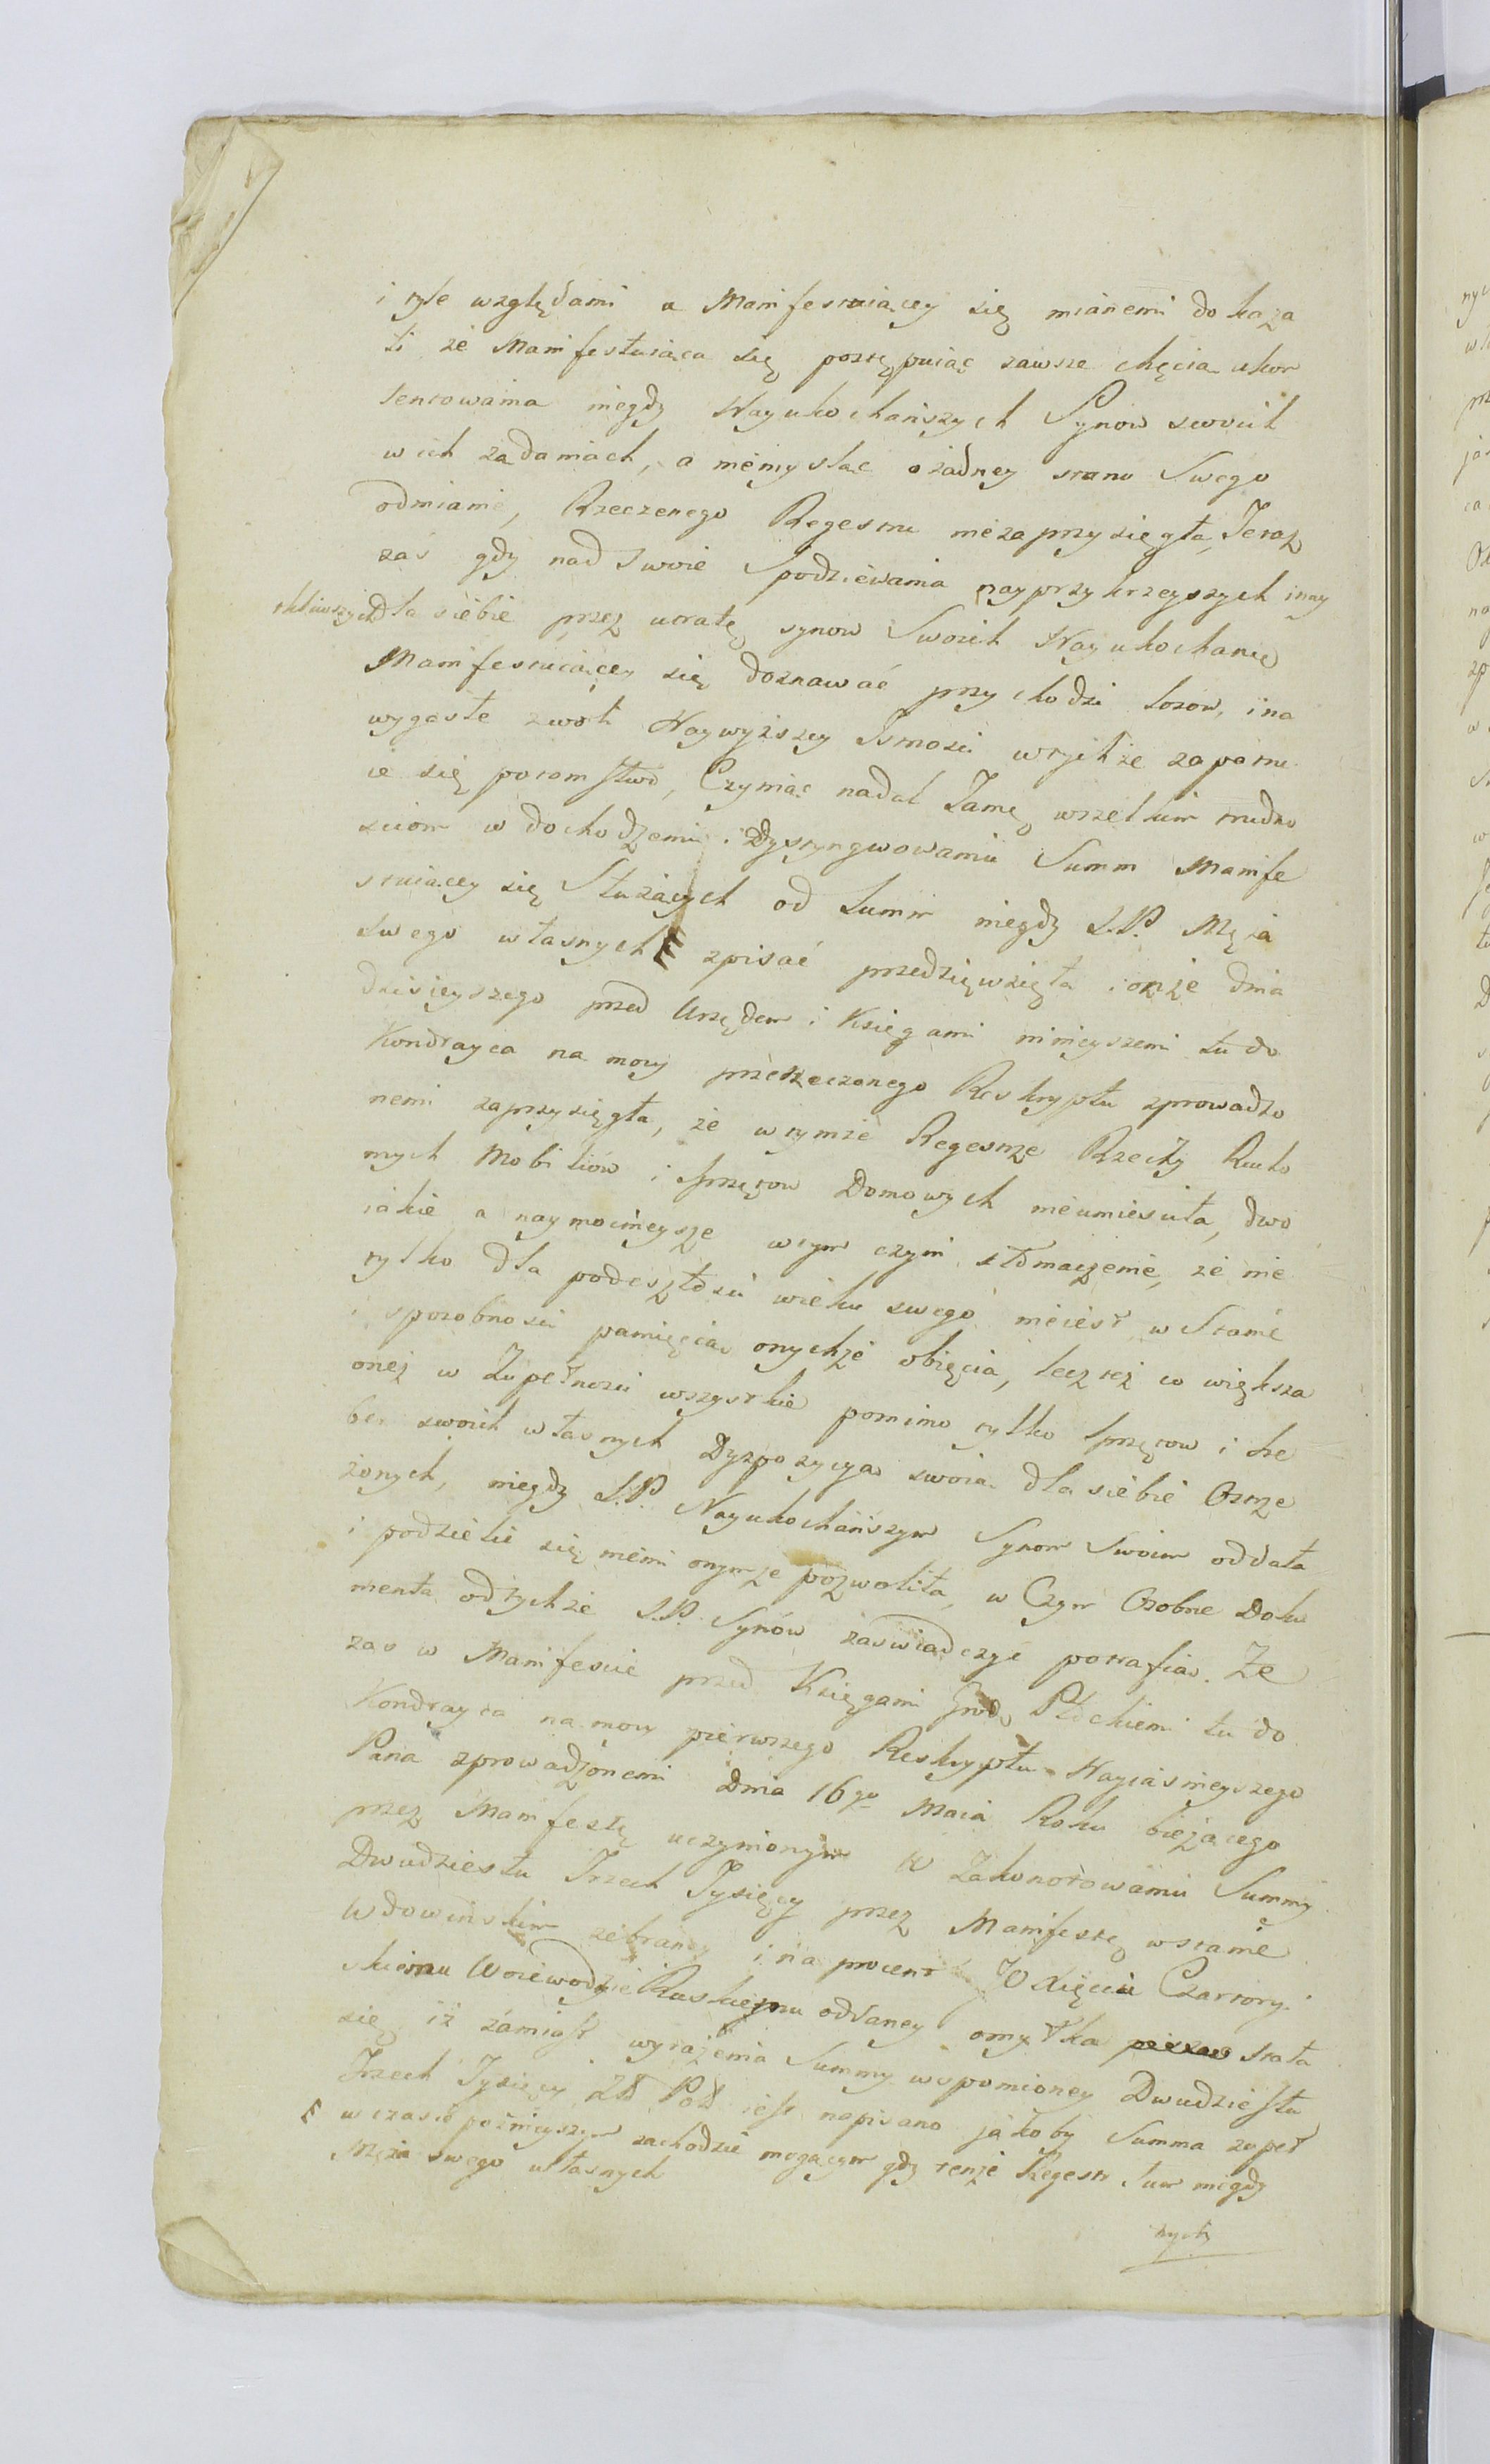 i tyle względami a Manifestuiącey się mianemi dokaza
li że Manifestuiąca się postępuiąc zawsze chęcią ukon
tentowania niegdy Nayukochańszych Synow swoich
w ich żądaniach, a niemyslac o żadney stanu Swego
odmianie, Rzeczonego Regestru niezaprzysięgła, Teraz
zaś gdy nad Swoie Spodziewania nayprzykrzeyszych i nay
tkliwszych dla siebie przez utratę synow Swoich Nayukochanię
Manifestuiącey się doznawać przychodzi losow, i na
wygasłe zwoli Naywyższey Istnosci wtychże zapatru
ie się potomstwo, Czyniąc nadal Tamę wszelkim trudno
sciom w dochodzeniu i Dystyngwowaniu Summ Manife
stuiącey się Służących od Summ niegdy S.P. Męża
swego własnych E zpisać przedzięwzięła i onże dnia
dzisieyszego przed Urzędem i Księgami ninieyszemi tu do
Kondrayca na mocy przerzeczonego Reskryptu zprowadzo
nemi zaprzysięgła, że w tymże Regestrze Rzeczy Rucho
mych Mobiliów i sprzętow Domowych nieumiesciła, dwo
iakie a naymocnieysze wtym czyni tłomaczenie, że nie
tylko dla podeszłosci wieku swego nieiest w Stanie
i sposobnosci pamięcią onychże obięcia, lecz też co większa
oneż w Zupełnosci wszystkie pomimo tylko sprzętow i sre
ber swoich własnych Dyzpozycyą swoią dla siebie Ostrze
żonych, niegdy S.P. Nayukochańszym Synom Swoim oddała
i podzielić się niemi onymże pozwoliła, w Czym Osobne Doku
menta od tychże S.P. Synów zaswiadczyć potrafią. Ze
zas w Manifescie przed Księgami Grod. Płockiemi tu do
Kondrayca na mocy pierwszego Reskryptu Nayiasnieyszego
Pana zprowadzonemi Dnia 16go Maia Roku bieżącego
przez Manifestę uczynionym w Zakonotowaniu Summy
Dwudziestu Trzech Tysięcy przez Manifestę w stanie
Wdowinskim zebraney i na procent JO Xięciu Czartory
skiemu Woiewodzie Ruskiemu oddaney omyłka stała
się iż zámiast wyrażenia Summy wspomioney Dwudziestu
Trzech Tysięcy Zł Pol iest napisano jakoby Summa zupeł
E w czasie poznieyszym zachodzić mogącym gdy tenże Regestr Sum niegdy
Męża swego własnych
nych